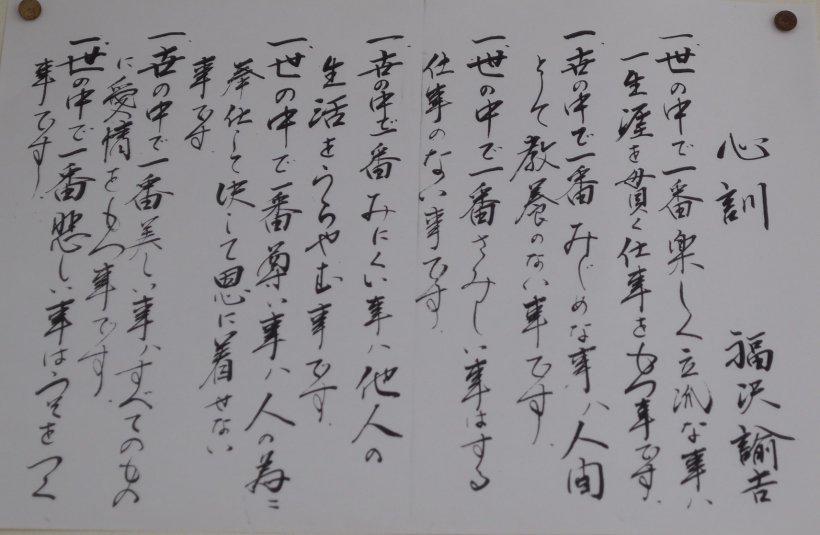 心訓
福沢諭吉
一、世の中で一番楽しく立派な事ハ
一生涯を貫く仕事をもつ事です。
一、世の中で一番みじめな事ハ人間
として教養のない事です。
一、世の中で一番さみしい事はする
仕事のない事です。
一、世の中で一番みにくい事ハ他人の
生活をうらやむ事です。
一、世の中で一番尊い事ハ人の為に
奉仕して決して恩に着せない
事です
一、世の中で一番美しい事ハすべてのもの
に愛情をもつ事です。
一、世の中で一番悲しい事はうそをつく
事です。